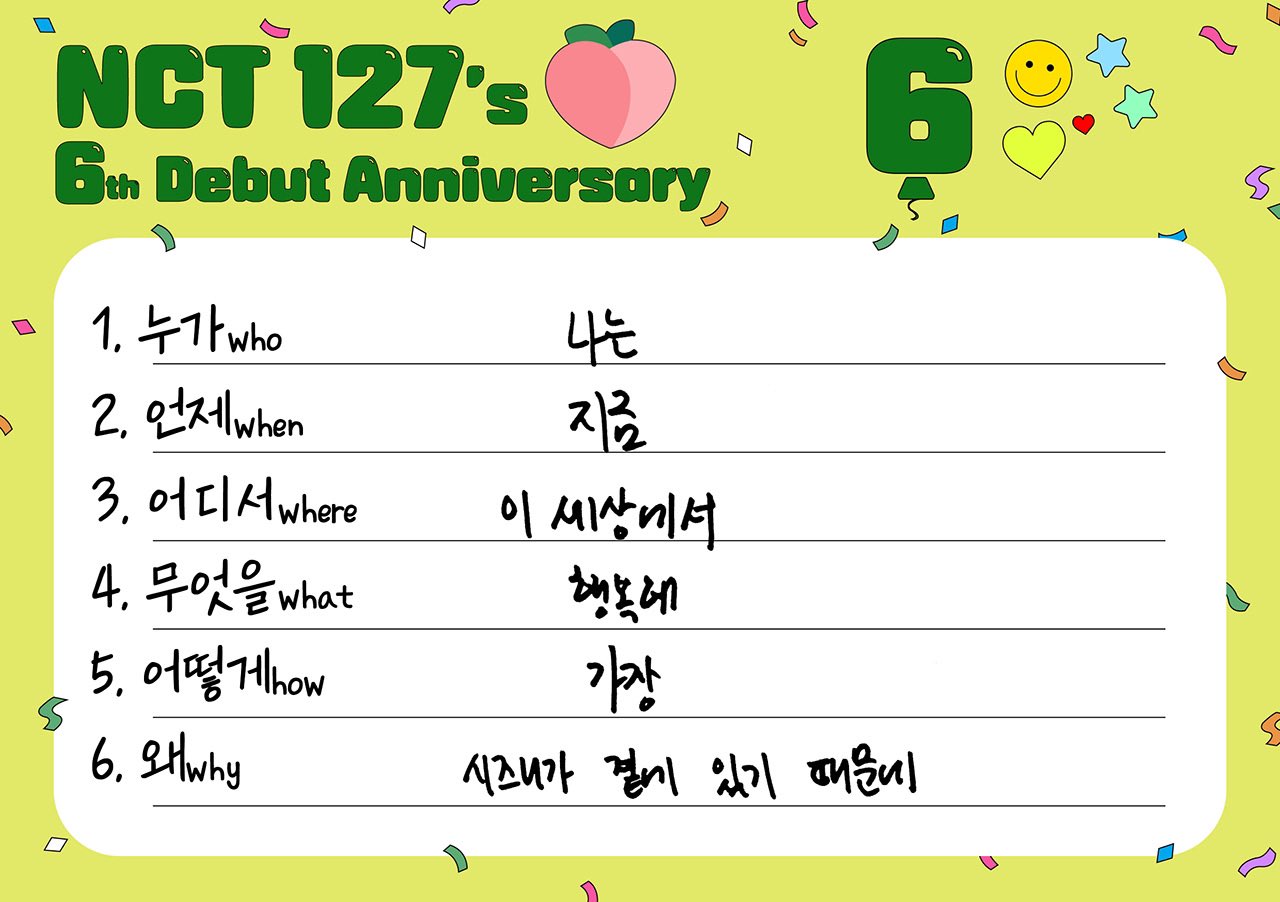 NCT 127's
6th Debut Anniversary
6
1. 누가who 나는
2. 언제when 지금
3. 어디서where 이 세상에서
4. 무엇을what 행복해
5. 어떻게how 가장
6. 왜why 시즈니가 곁에 있기 때문에